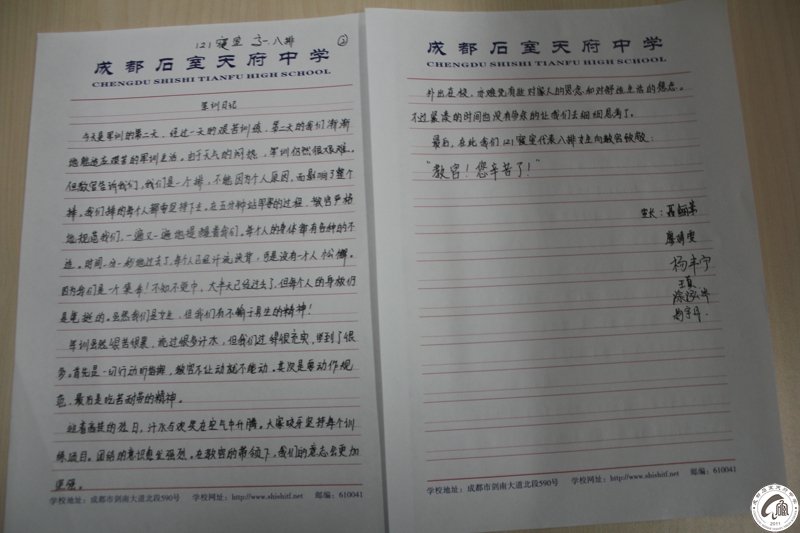 121寝室 高一八排 ②
成都石室天府中学
CHENGDU SHISHI TIANFU HIGH SCHOOL
军训日记
今天是军训的第二天,经过一天的艰苦训练,第二天的我们渐渐
地融进在艰苦的军训生活。由于天气的闷热,军训仍然很艰难。
但教官告诉我们,我们是一个排,不能因为个人原因,而影响了整个
排。我们排的每个人都会坚持下去。在五分钟站军姿的过程,教官严格
地规范我们,一遍又一遍地提醒着我们。每个人的身体都有各种的不
适。时间一分一秒地过去了,每个人已经汗流浃背,可是没有一个人松懈。
因为我们是一个集体!不知不觉中,大半天已经过去了,但每个人的身板仍
是笔挺的。虽然我们是女生,但我们有不输于男生的精神!
军训虽然艰苦很累,流过很多汗水,但我们过得很充实,学到了很
多。首先是一切行动听指挥,教官不让动就不能动。其次是要动作规
范,最后是吃苦耐劳的精神。
迎着高照的烈日,汗水与欢笑在空气中升腾。大家咬牙坚持每个训
练项目。团结的意识愈发强烈。在教官的带领下,我们的意志会更加
坚强。
学校地址:成都市剑南大道北段590号 学校网址:http://www.shishitf.net 邮编:610041
成都石室天府中学
CHENGDU SHISHI TIANFU HIGH SCHOOL
外出在校,亦难免有些对家人的思念和对舒适生活的想念。
不过紧凑的时间也没有争求的让我们去细细思考了。
最后,在此我们121寝室代表八排女生向教官致敬:
“教官!您辛苦了!”
室长:聂
廖诗雯
杨丰宁
王真
学校地址:成都市剑南大道北段590号 学校网址:http://www.shishitf.net 邮编:610041
2011